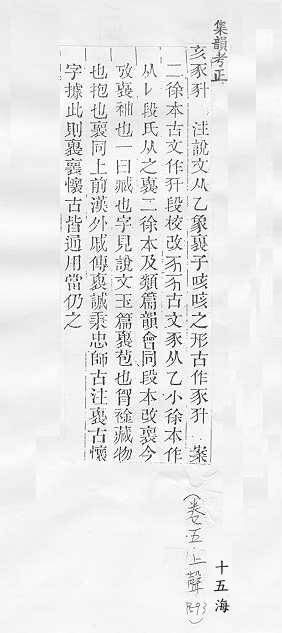 集韻考正
亥豕𢁳 注說文从乙象褱子咳咳之形古作豕𢁳 案
二徐本古文作𢁳段校改㔻㔻古文豕从乙小徐本作
从乚段氏从之褱二徐本及類篇韻會同段本改裹今
攷褱袖也一曰臧也字見說文玉篇褱苞也胷襘藏物
也抱也褱同上前漢外戚傳褱誠秉忠師古注褱古懷
字據此則褱裹懷古皆通用當仍之
(卷五上聲 P.693)
十五海